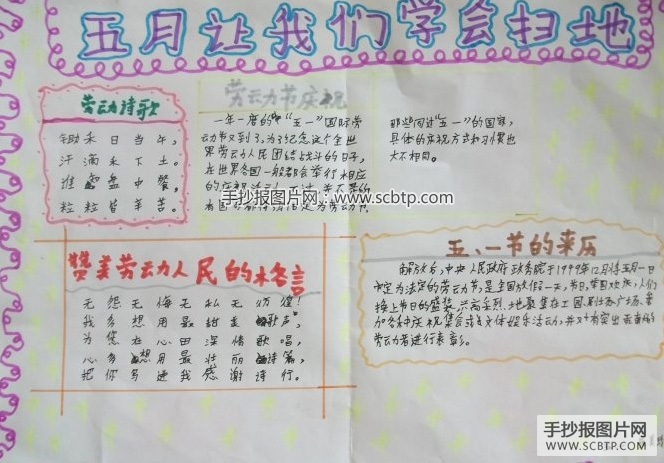 五月让我们学会扫地
劳动诗歌
锄禾日当午,
汗滴禾下土。
谁知盘中餐,
粒粒皆辛苦。
劳动节庆祝
一年一度的“五一”国际劳
动节又到了,为了纪念这个全世
界劳动人民团结战斗的日子,
在世界各国一般都会举行相应
的庆祝活动
有国
为劳动节
那些同过“五一”的国家,
具体的庆祝方式和习惯也
大不相同。
手抄报图片网:www.scbtp.com
赞美劳动人民的名言
无怨无悔无私无彷徨!
我多想用最甜美歌声,
为您在心田深情歌唱,
心多想用最壮丽诗篇,
把你写进我感谢诗行。
五、一节的来历
解放后,中央人民政府政务院于1949年12月将五月一
定为法定的劳动节,是全国放假一天,节日,举国欢庆,人们
换上节日的盛装,兴高采烈地聚集在工园、剧院、广场、参
加各种庆祝集会或文体娱乐活动,并对有突出贡献的
劳动者进行表彰。
手抄报图片网
WWW.SCBTP.COM